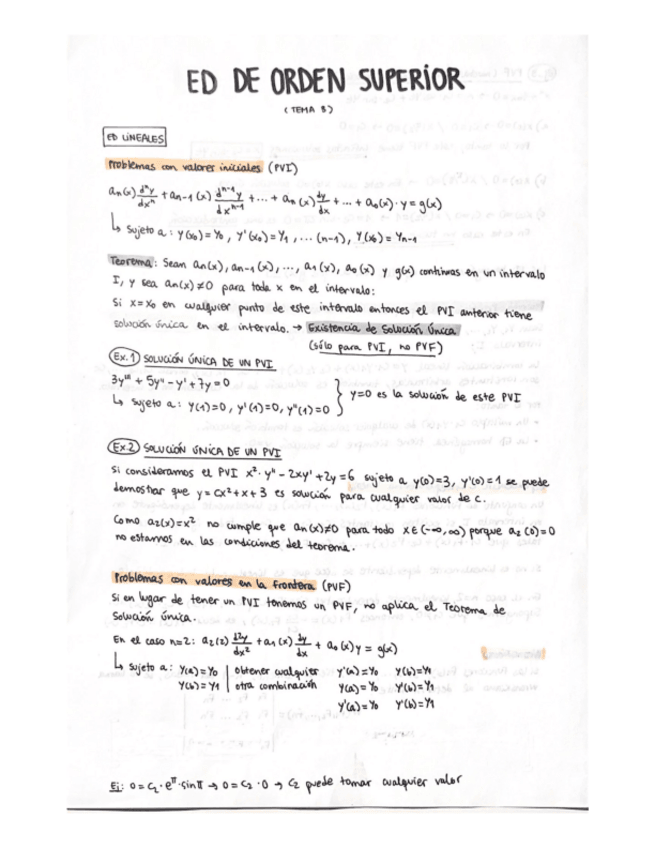 ED DE ORDEN SUPERIOR
(TEMA 3)
ED LINEALES
Problemas con valores iniciales (PVI)
an(x) dⁿy/dxⁿ + an-1(x) dⁿ⁻¹y/dxⁿ⁻¹ + ... + an(x) dy/dx + ... + a0(x)·y = g(x)
↳ Sujeto a: y(x0)=y0, y'(x0)=y1, ... (n-1), y(x0)=yn-1
Teorema: Sean an(x), an-1(x), ..., a1(x), a0(x) y g(x) continuas en un intervalo
I, y sea an(x)≠0 para toda x en el intervalo:
Si x=x0 en cualquier punto de este intervalo entonces el PVI anterior tiene
solución única en el intervalo. → Existencia de Solución Única
(sólo para PVI, no PVF)
Ex.1) SOLUCIÓN ÚNICA DE UN PVI
3y''' + 5y'' - y' + 7y = 0
↳ Sujeto a: y(1)=0, y'(1)=0, y''(1)=0 } y=0 es la solución de este PVI
Ex.2) SOLUCIÓN ÚNICA DE UN PVI
Si consideramos el PVI x²·y'' - 2xy' + 2y = 6 sujeto a y(0)=3, y'(0)=1 se puede
demostrar que y = cx² + x + 3 es solución para cualquier valor de c.
Como a2(x)=x² no cumple que an(x)≠0 para todo x∈(-∞,∞) porque a2(0)=0
no estamos en las condiciones del teorema.
Problemas con valores en la frontera (PVF)
Si en lugar de tener un PVI tenemos un PVF, no aplica el Teorema de
Solución única.
En el caso n=2: a2(2) d²y/dx² + a1(x) dy/dx + a0(x)y = g(x)
↳ Sujeto a: y(a)=y0 | obtener cualquier y'(a)=y0 y(b)=y1
y(b)=y1 | otra combinación y(a)=y0 y'(b)=y1
y'(a)=y0 y'(b)=y1
Ej: 0=c2·e^π·sinπ → 0=c2·0 → c2 puede tomar cualquier valor